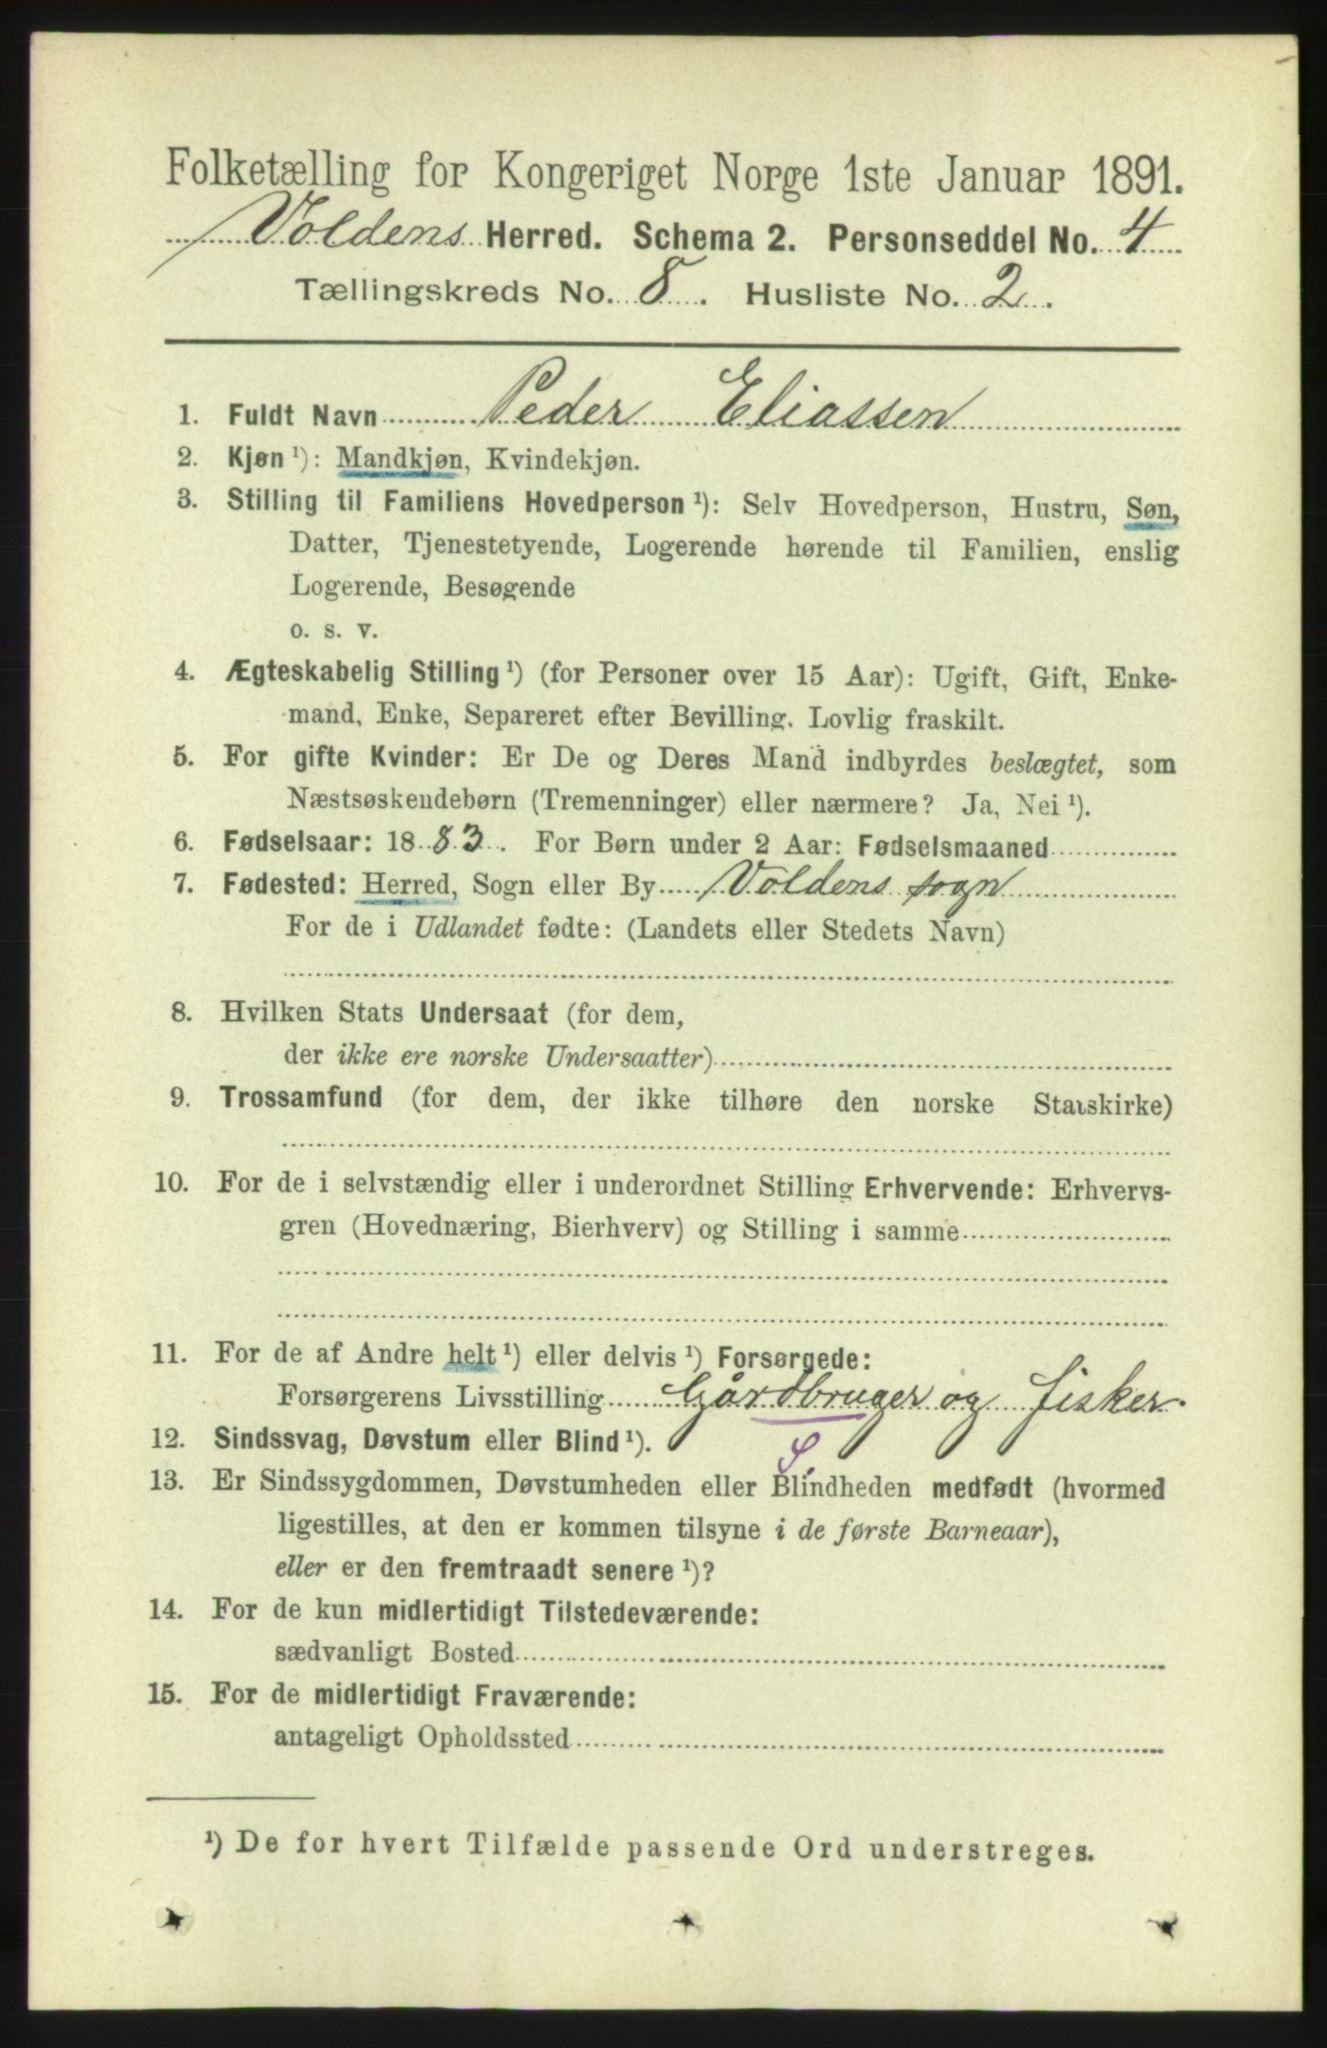 Folketælling for Kongeriget Norge 1ste Januar 1891.
Voldens Herred. Schema 2. Personseddel No. 4
Tællingskreds No. 8. Husliste No. 2.
1. Fuldt Navn Peder Eliassen
2. Kjøn ¹): Mandkjøn, Kvindekjøn.
3. Stilling til Familiens Hovedperson ¹): Selv Hovedperson, Hustru, Søn,
Datter, Tjenestetyende, Logerende hørende til Familien, enslig
Logerende, Besøgende
o. s. v.
4. Ægteskabelig Stilling ¹) (for Personer over 15 Aar): Ugift, Gift, Enke-
mand, Enke, Separeret efter Bevilling. Lovlig fraskilt.
5. For gifte Kvinder: Er De og Deres Mand indbyrdes beslægtet, som
Næstsøskendebørn (Tremenninger) eller nærmere? Ja, Nei ¹).
6. Fødselsaar: 1883. For Børn under 2 Aar: Fødselsmaaned
7. Fødested: Herred, Sogn eller By Voldens sogn
For de i Udlandet fødte: (Landets eller Stedets Navn)
8. Hvilken Stats Undersaat (for dem,
der ikke ere norske Undersaatter)
9. Trossamfund (for dem, der ikke tilhøre den norske Statskirke)
10. For de i selvstændig eller i underordnet Stilling Erhvervende: Erhvervs-
gren (Hovednæring, Bierhverv) og Stilling i samme
11. For de af Andre helt ¹) eller delvis ¹) Forsørgede:
Forsørgerens Livsstilling Gårdbruger og fisker.
12. Sindssvag, Døvstum eller Blind ¹). S.
13. Er Sindssygdommen, Døvstumheden eller Blindheden medfødt (hvormed
ligestilles, at den er kommen tilsyne i de første Barneaar),
eller er den fremtraadt senere ¹)?
14. For de kun midlertidigt Tilstedeværende:
sædvanligt Bosted
15. For de midlertidigt Fraværende:
antageligt Opholdssted
¹) De for hvert Tilfælde passende Ord understreges.